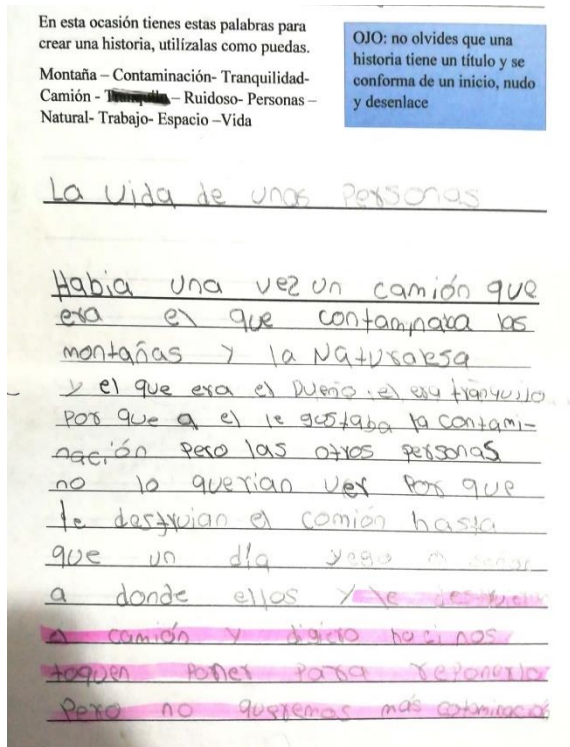 En esta ocasión tienes estas palabras para
crear una historia, utilízalas como puedas.
Montaña – Contaminación- Tranquilidad-
Camión - – Ruidoso- Personas –
Natural- Trabajo- Espacio –Vida
OJO: no olvides que una
historia tiene un título y se
conforma de un inicio, nudo
y desenlace
La vida de unas Personas
Habia una vez un camión que
era el que contaminaba las
montañas y la Naturalesa
y el que era el Dueño. el era tranquilo
Por que a el le gustaba la contami-
nación pero las otros personas
no lo querian ver por que
le destruian el comión hasta
que un día yego señor
a donde ellos y le
el camión y digiero haci nos
toquen Poner Para reponerlo
Pero no queremos más